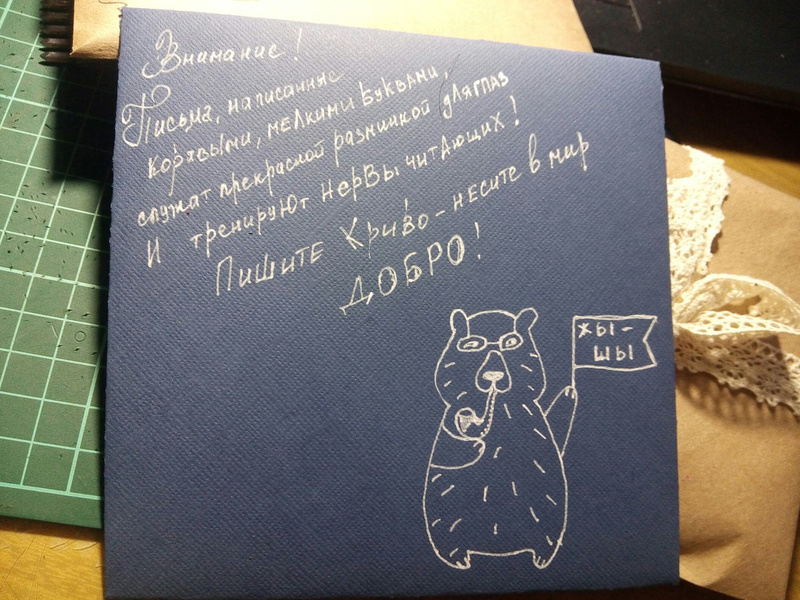 Внимание!
Письма, написанные
корявыми, мелкими буквами,
служат прекрасной разминкой для глаз
и тренируют нервы читающих!
Пишите криво - несите в мир
ДОБРО!
ЖЫ -
ШЫ